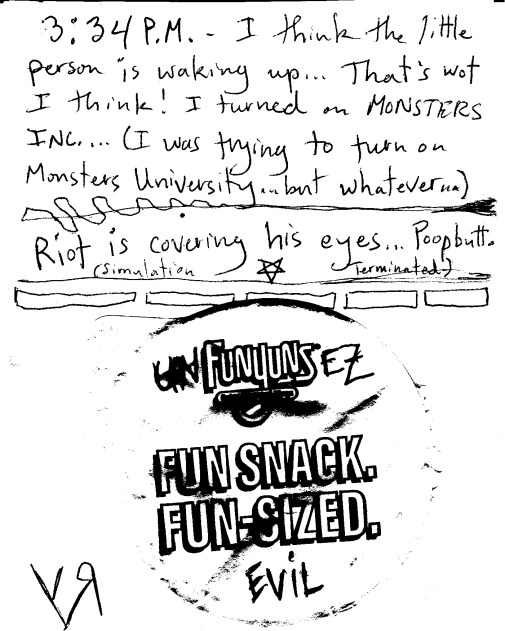 3:34 P.M. - I think the little
person is waking up... That's wot
I think! I turned on MONSTERS
INC.... (I was trying to turn on
Monsters University...but whatever na)
Riot is covering his eyes... Poopbutt.
(Simulation Terminated)
FUNYUNS EZ
FUN SNACK.
FUN-SIZED.
EVIL
VR